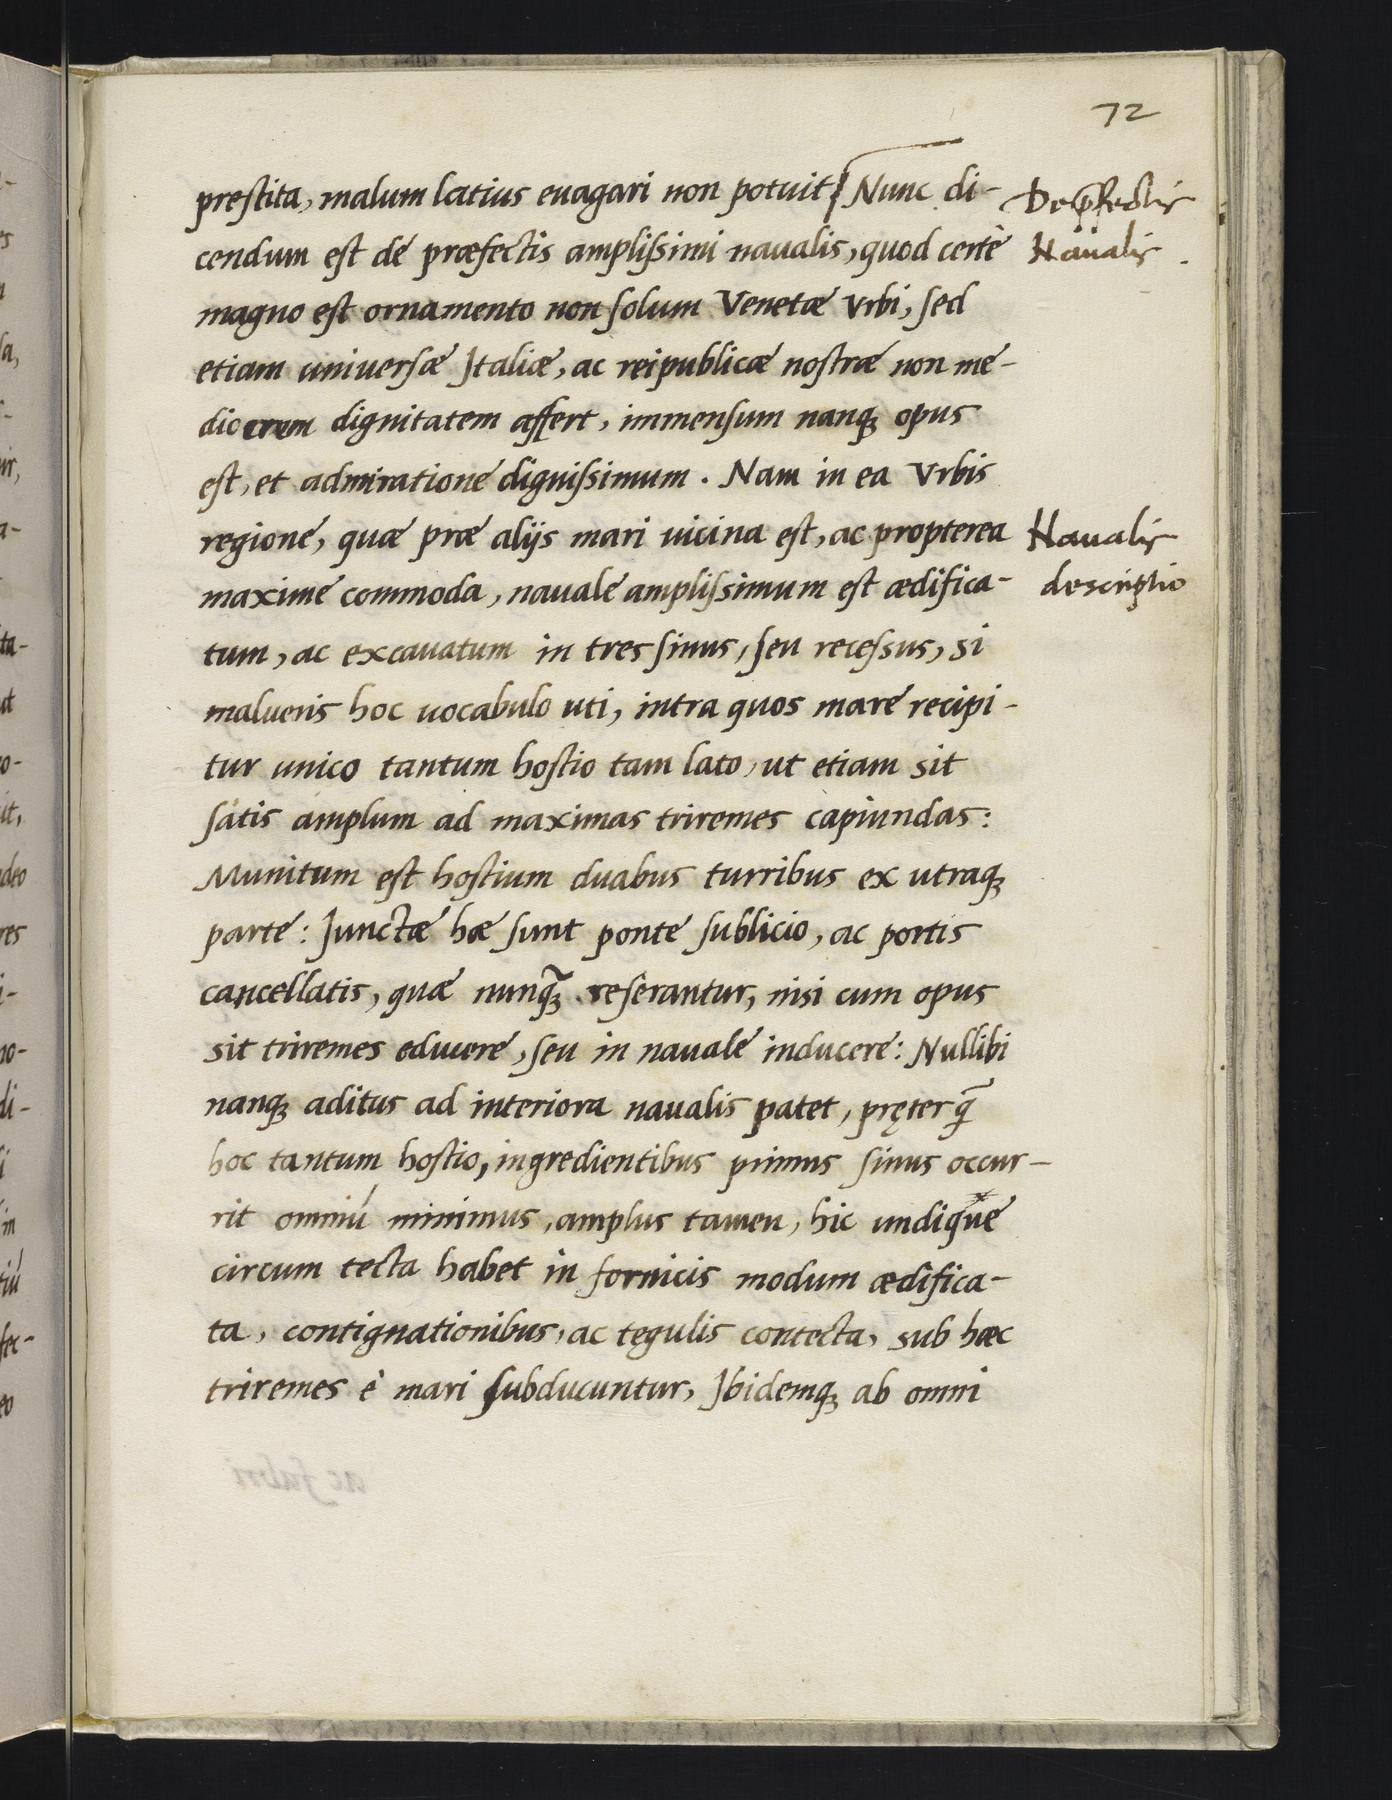 72
prestita, malum latius euagari non potuit Nunc di-
De p̄fectis
cendum est de præfectis amplissimi naualis, quod certè
Naualis .
magno est ornamento non solum Venetæ Vrbi, sed
etiam uniuersæ Italiæ, ac reipublicæ nostræ non me-
diocrem dignitatem affert, immensum nanq; opus
est, et admiratione dignissimum . Nam in ea Vrbis
regione, quæ præ alijs mari uicina est, ac propterea
Naualis
maxime commoda, nauale amplissimum est ædifica-
descriptio
tum, ac excauatum in tres sinus, seu recessus, si
malueris hoc uocabulo uti, intra quos mare recipi-
tur unico tantum hostio tam lato, ut etiam sit
satis amplum ad maximas triremes capiundas:
Munitum est hostium duabus turribus ex utraq;
parte: Junctæ hæ sunt ponte sublicio, ac portis
cancellatis, quæ nunq̃; reserantur, nisi cum opus
sit triremes educere, seu in nauale inducere: Nullibi
nanq; aditus ad interiora naualis patet, pręterq̃
hoc tantum hostio, ingredientibus primus sinus occur-
rit omniú minimus, amplus tamen, hic undique
circum tecta habet in fornicis modum ædifica-
ta, contignationibus, ac tegulis contecta, sub hæc
triremes è mari subducuntur, Ibidemq; ab omni